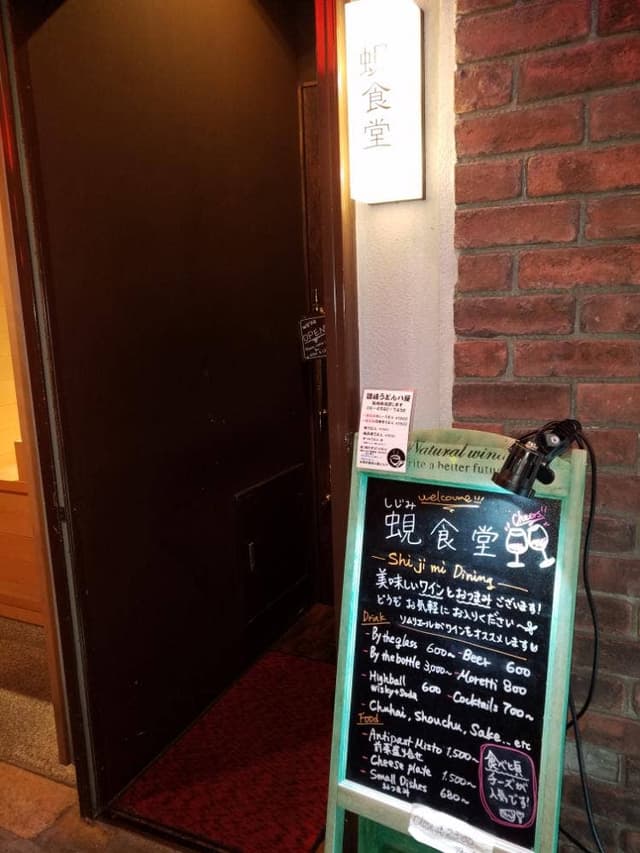 蜆食堂
WE'RE
OPEN
讃岐うどん八屋
Natural wind
rite a better futu
welcome!!!
しじみ
蜆食堂
Cheers!!
Shijimi Dining
美味しいワインとおつまみございます!
どうぞお気軽にお入りください
ソムリエールがワインをオススメします
Drink
- By the glass 600~
- Beer 600
- By the bottle 3,000~
- Moretti 800
- Highball 600
wisky+soda
- Cocktails 700~
- Chuhai, Shouchu, Sake... etc
Food
- Antipast Misto 1,500~
前菜盛り合せ
- Cheese plate 1,500~
- Small Dishes 680~
おつまみ
食べと頃
チーズが
人気です!